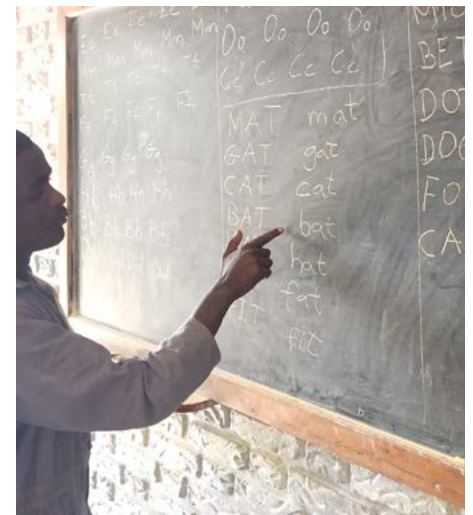 Ee Ee Ee Ee
Mm Mm Mm Mm Mm
Ff Ff Ff Ff
Gg Gg Gg Gg
Hh Hh Hh Hh
Bb Bb Bb Bb
Dd Dd Dd Dd
Oo Oo Oo Oo
Cc Cc Cc Cc
MAT mat
GAT gat
CAT cat
BAT bat
hat
fat
fit
BET
DOT
FO
CA